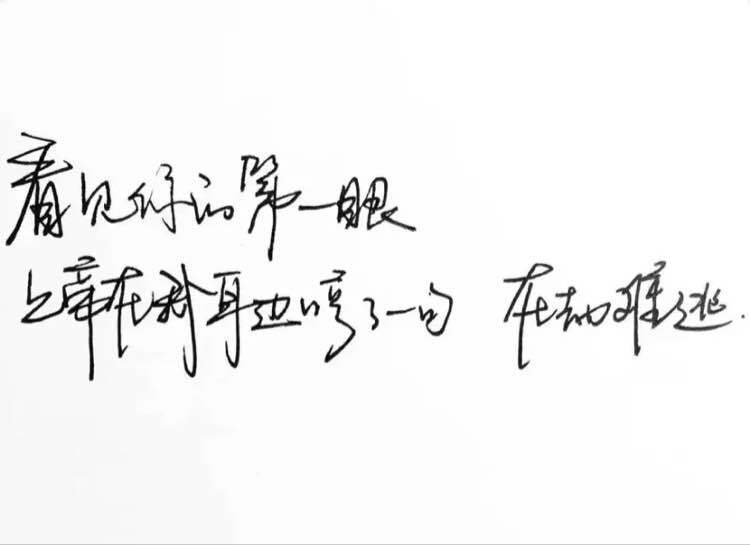 看见你的第一眼
上帝在我耳边说了一句 在劫难逃.